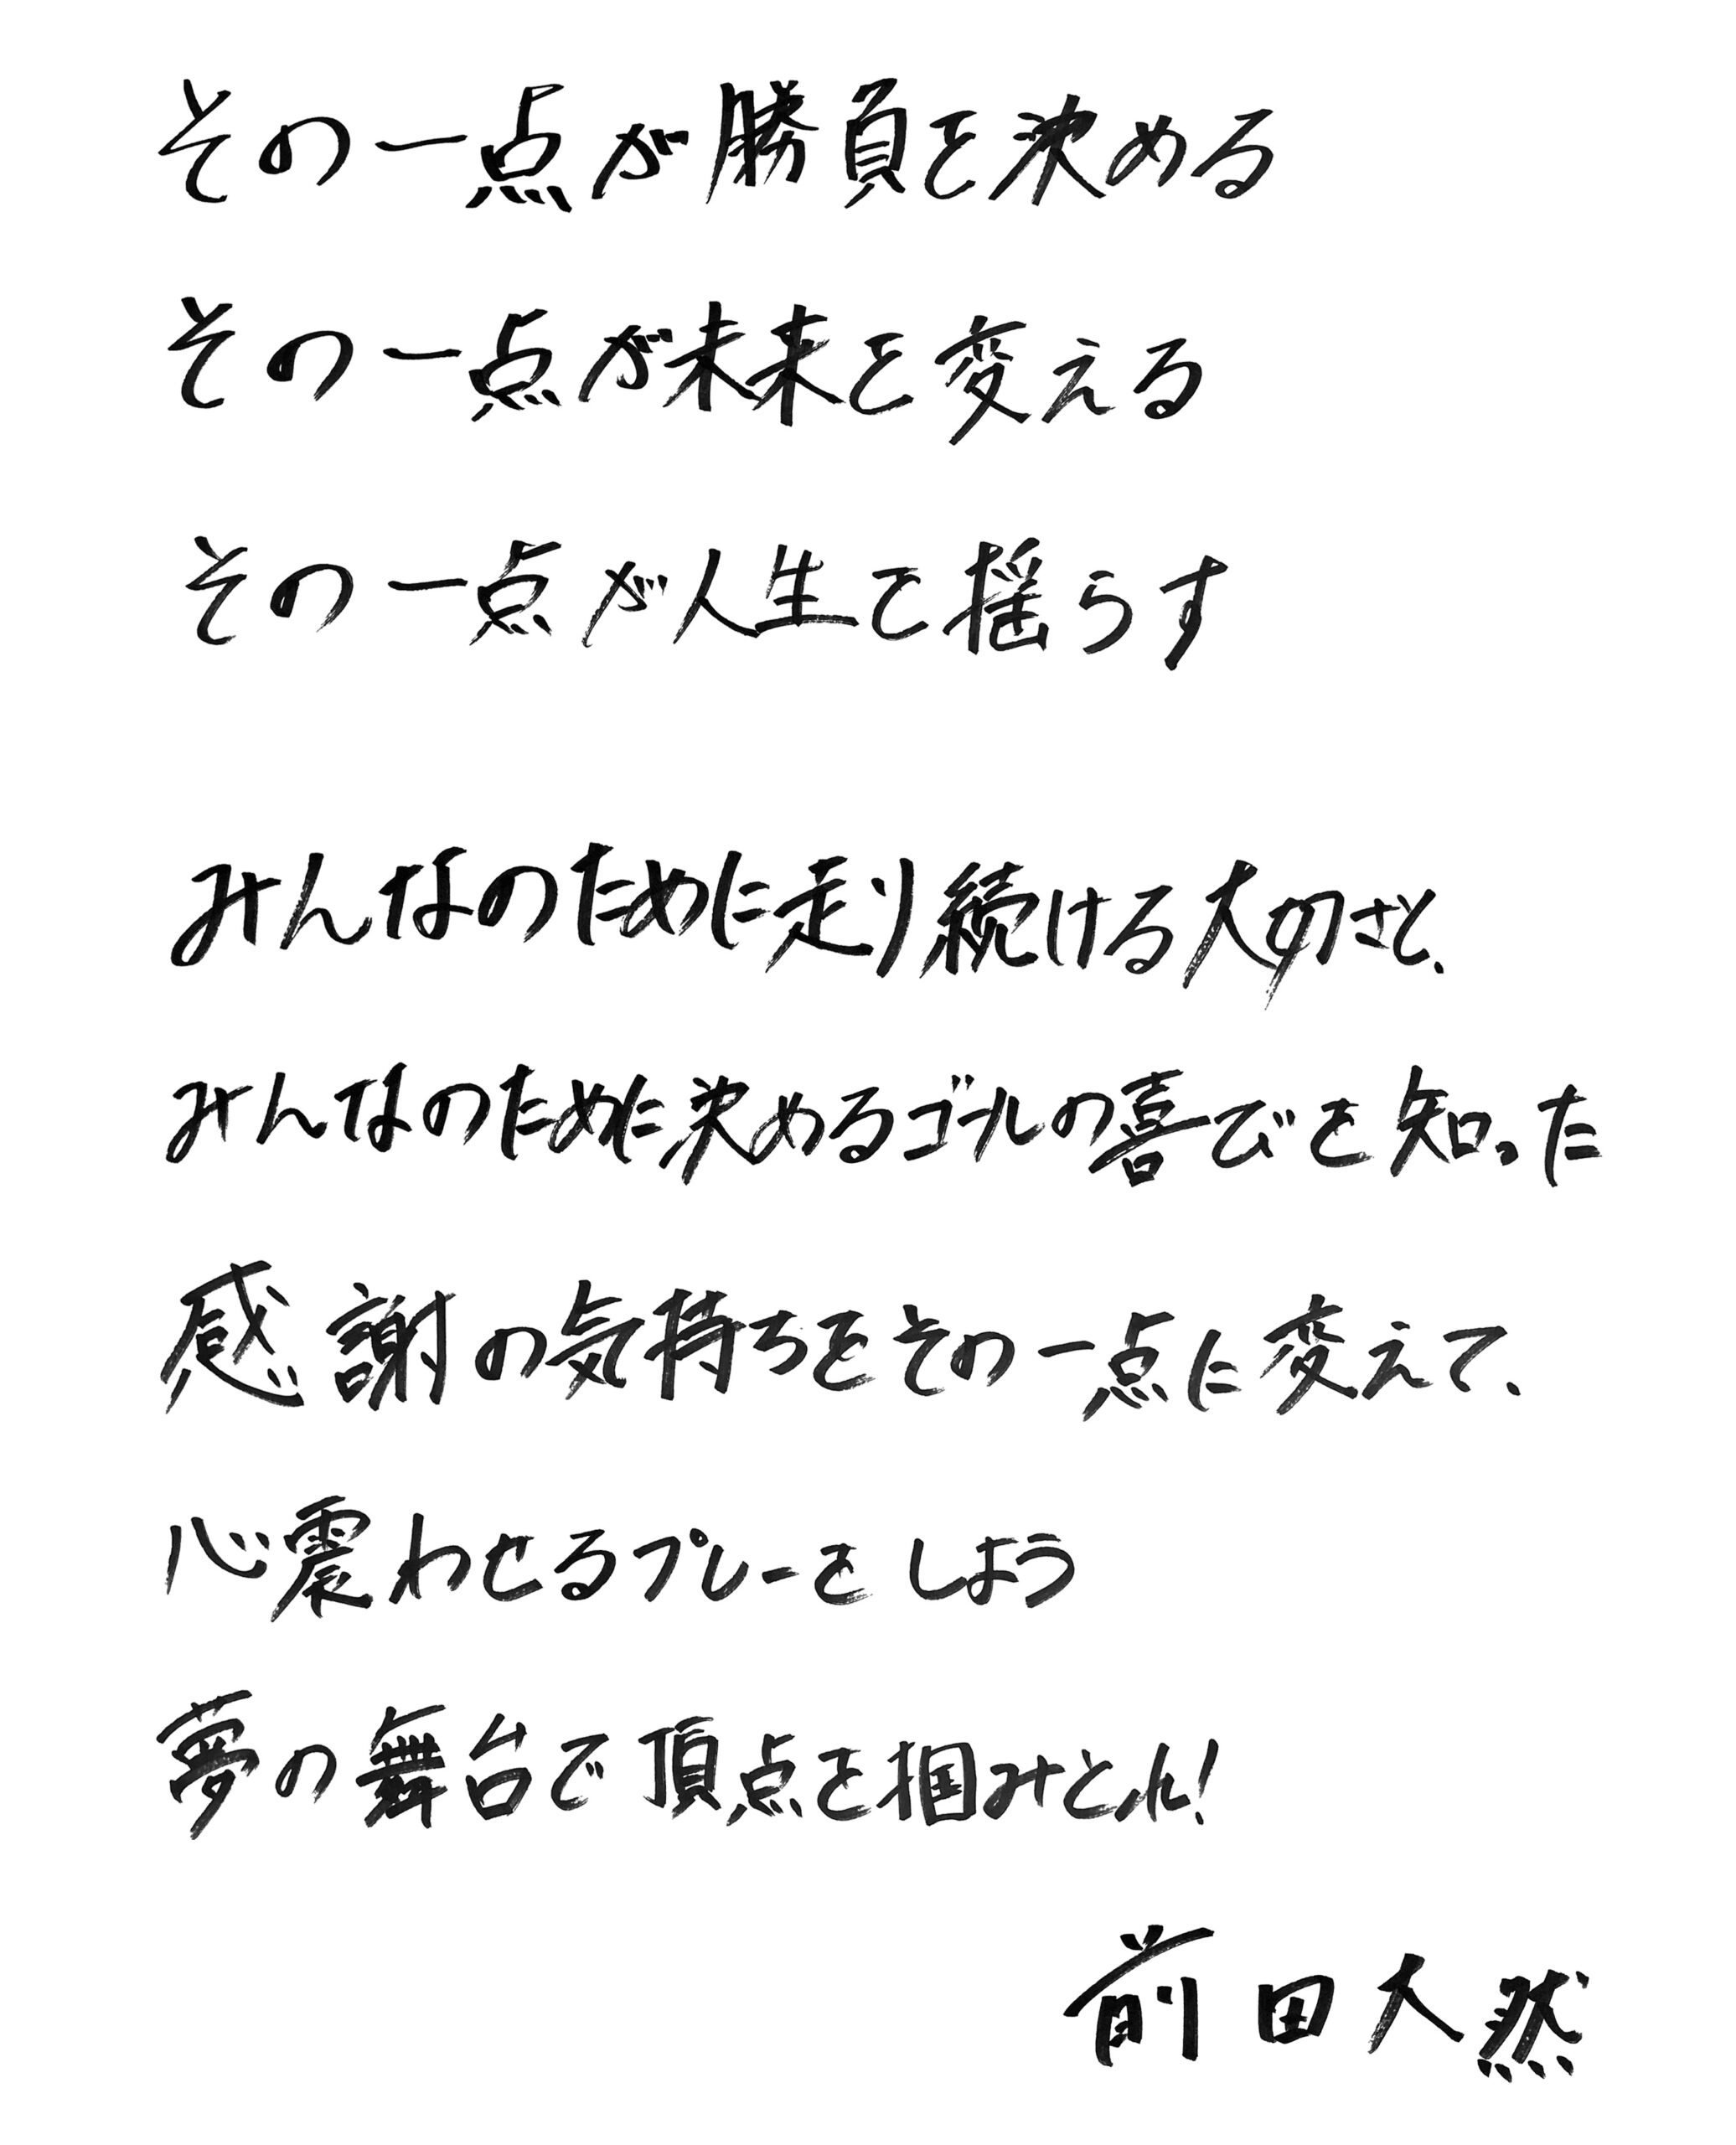 その一点が勝負を決める
その一点が未来を変える
その一点が人生を揺らす
みんなのために走り続ける大切さと、
みんなのために決めるゴールの喜びを知った
感謝の気持ちをその一点に変えて、
心震わせるプレーをしよう
夢の舞台で頂点を掴みとれ!
前田大然